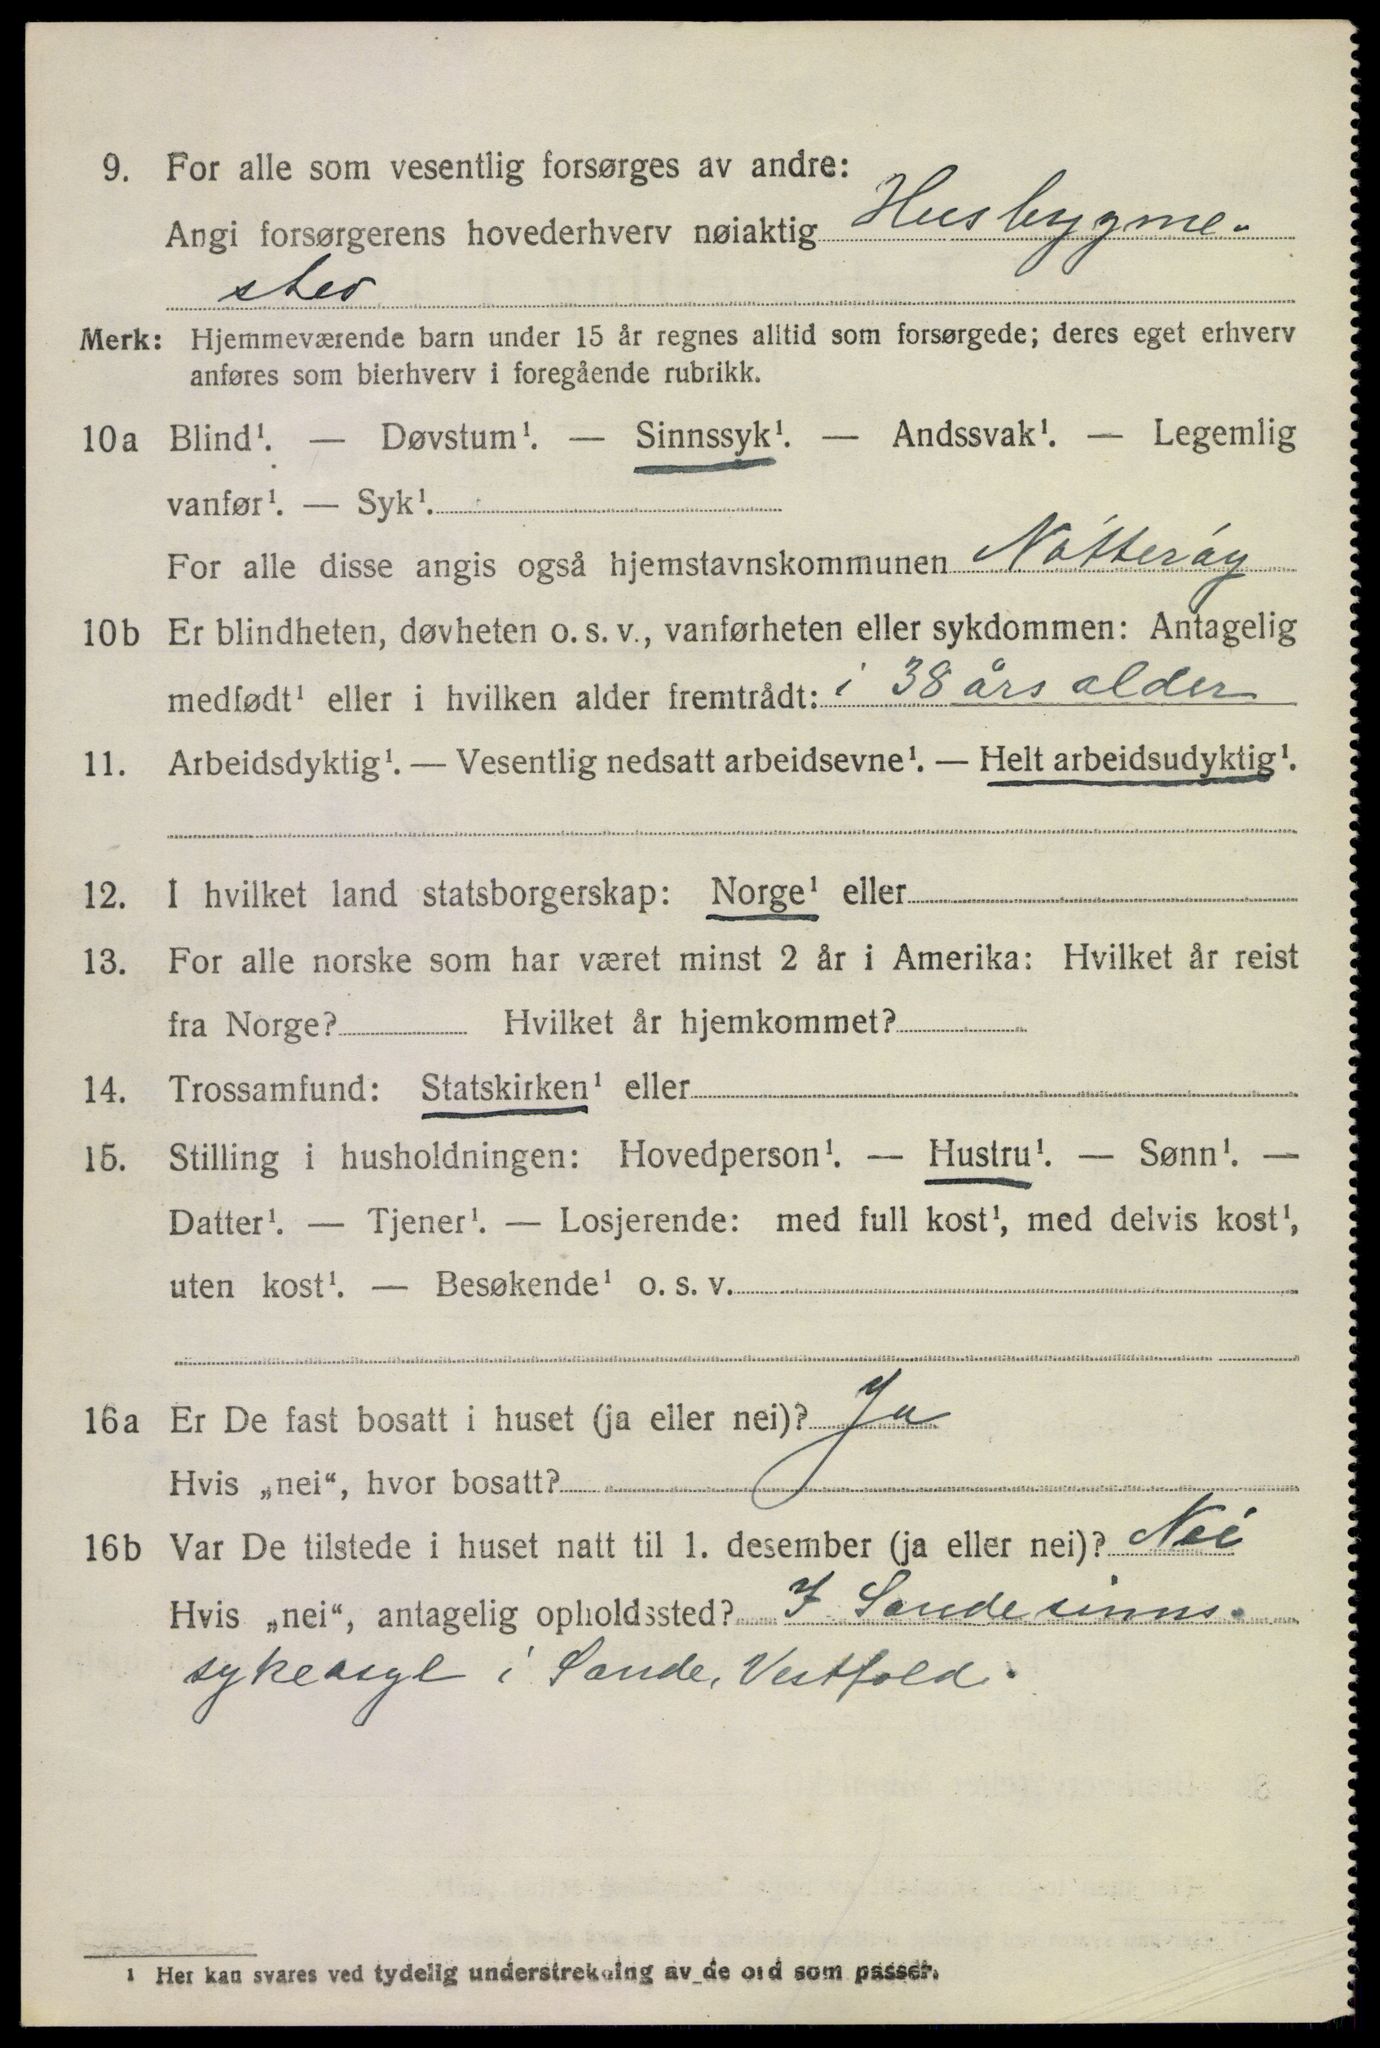 9. For alle som vesentlig forsørges av andre:
Angi forsørgerens hovederhverv nøiaktig Husbygme-
ster
Merk: Hjemmeværende barn under 15 år regnes alltid som forsørgede; deres eget erhverv
anføres som bierhverv i foregående rubrikk.
10a Blind¹. — Døvstum¹. — Sinnssyk¹. — Andssvak¹. — Legemlig
vanfør¹. — Syk¹.
For alle disse angis også hjemstavnskommunen Nøtterøy
10b Er blindheten, døvheten o. s. v., vanførheten eller sykdommen: Antagelig
medfødt¹ eller i hvilken alder fremtrådt: i 38 års alder
11. Arbeidsdyktig¹. — Vesentlig nedsatt arbeidsevne¹. — Helt arbeidsudyktig¹.
12. I hvilket land statsborgerskap: Norge¹ eller
13. For alle norske som har været minst 2 år i Amerika: Hvilket år reist
fra Norge? Hvilket år hjemkommet?
14. Trossamfund: Statskirken¹ eller
15. Stilling i husholdningen: Hovedperson¹. — Hustru¹. — Sønn¹. —
Datter¹. — Tjener¹. — Losjerende: med full kost¹, med delvis kost¹,
uten kost¹. — Besøkende¹ o. s. v.
16a Er De fast bosatt i huset (ja eller nei)? Ja
Hvis „nei“, hvor bosatt?
16b Var De tilstede i huset natt til 1. desember (ja eller nei)? Nei
Hvis „nei“, antagelig opholdssted? I Sande sinns-
sykeasyl i Sande, Vestfold.
¹ Her kan svares ved tydelig understrekning av de ord som passer.